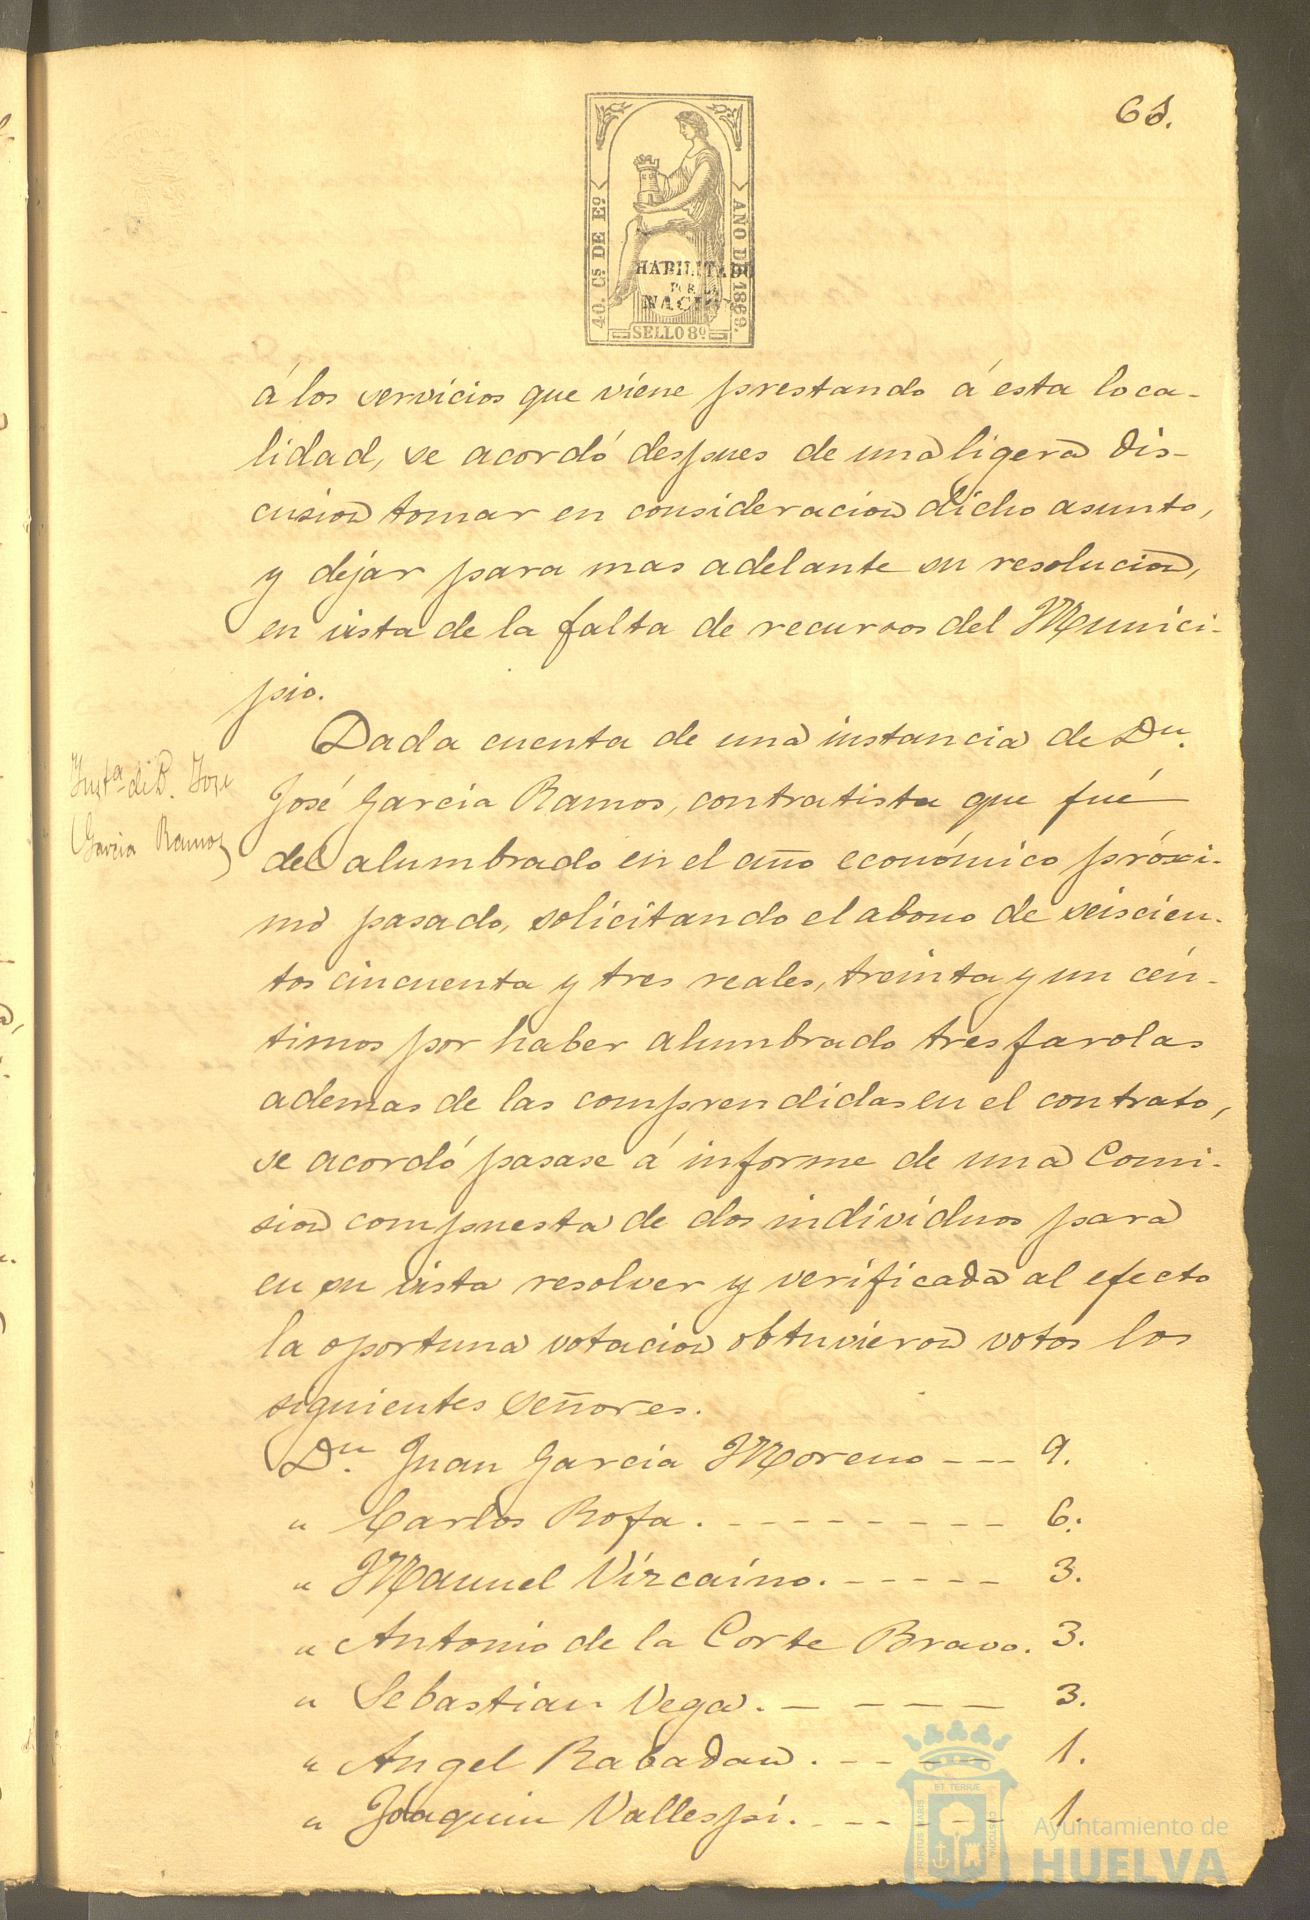 40. Cs DE Eo
AÑO DE 1869.
HABILITADO
POR LA
NACION
SELLO 8º
á los servicios que viene prestando á esta loca-
lidad, se acordó despues de una ligera dis-
cusion tomar en consideracion dicho asunto,
y dejar para mas adelante su resolucion,
en vista de la falta de recursos del Munici-
pio.
Insta de D. Jose
Garcia Ramos
Dada cuenta de una instancia de Dn.
José Garcia Ramos, contratista que fué
del alumbrado en el año económico próxi-
mo pasado, solicitando el abono de seiscien-
tos cincuenta y tres reales, treinta y un cén-
timos por haber alumbrado tres farolas
ademas de las comprendidas en el contrato,
se acordó pasase á informe de una Comi-
sion compuesta de dos individuos para
en su vista resolver y verificada al efecto
la oportuna votacion obtuvieron votos los
siguientes señores.
Dn. Juan Garcia Moreno --- 9.
" Carlos Rofa. --------- 6.
" Manuel Vizcaino. ----- 3.
" Antonio de la Corte Bravo. 3.
" Sebastian Vega. ----- 3.
" Angel Rabadan. ----- 1.
" Joaquin Vallespi. ------ 1.
PORTUS MARIS
ET TERRÆ
CUSTODIA
Ayuntamiento de
HUELVA